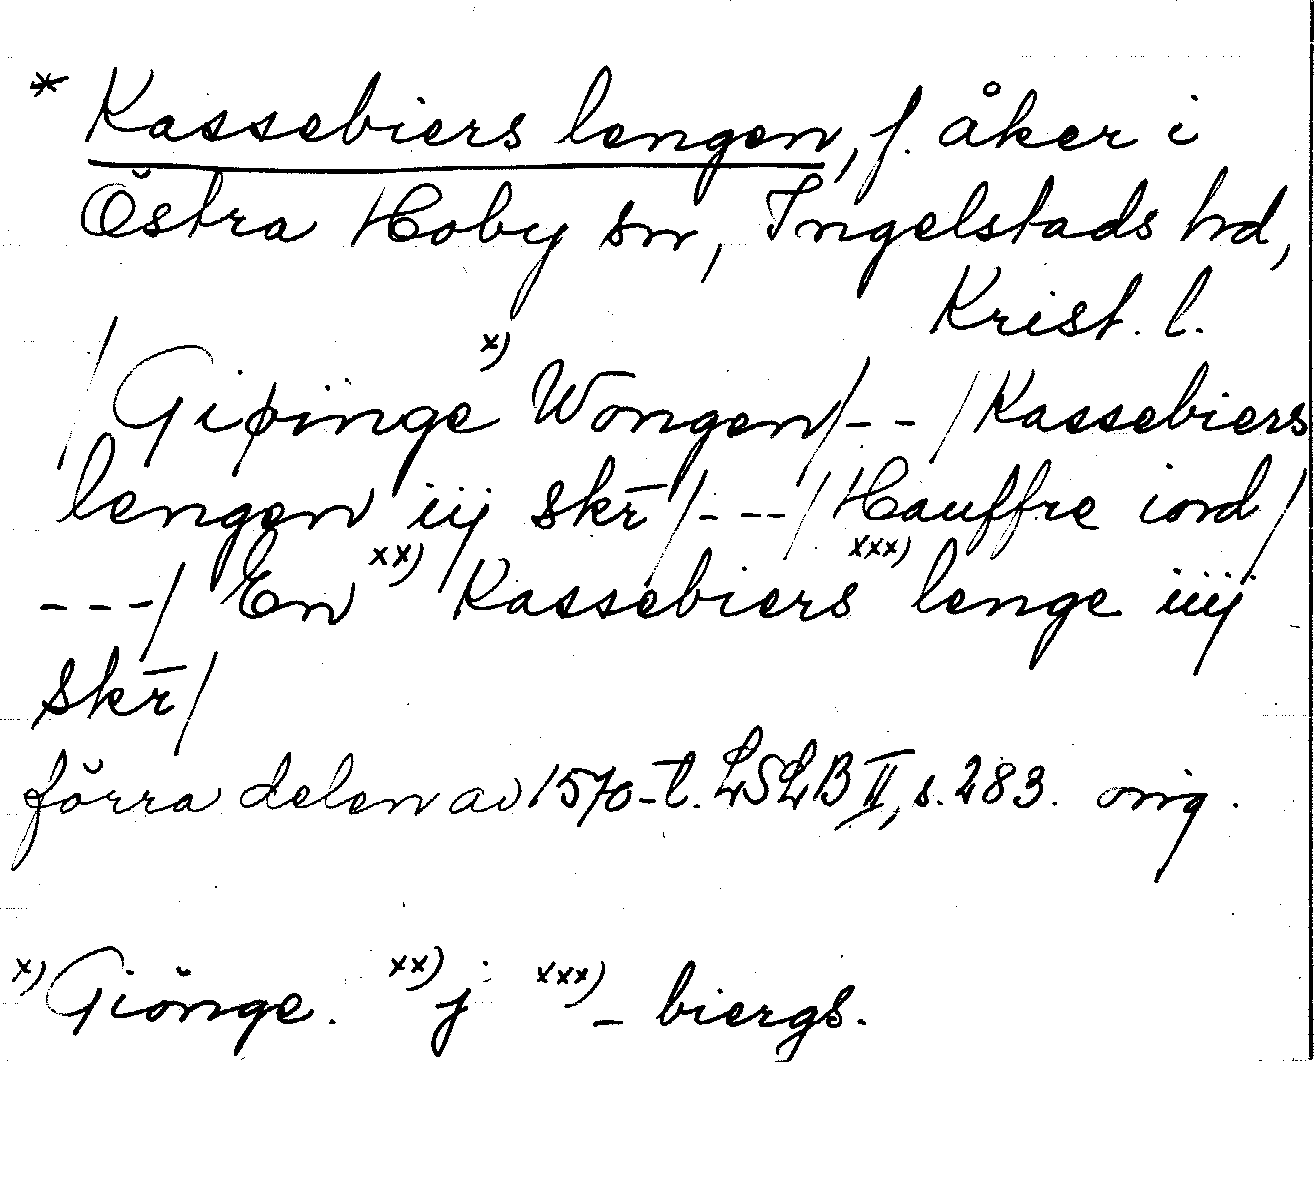 * Kassebiers lengen, f. åker i
Östra Hoby sn, Ingelstads hd,
Krist. l.
/Giøinge x) Wongen/--/Kassebiers
lengen iij skr̄/---/Hauffre iord/
---/ En xx) Kassebiers xxx) lenge iiij
skr̄/
förra delen av 1570-t. LSLB II, s. 283. orig.
x) Giönge. xx) j xxx) - biergs.